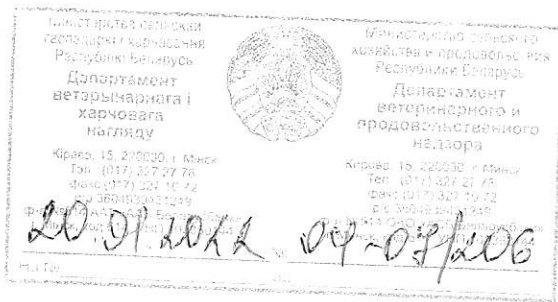 Міністэрства сельскай
гаспадаркі і харчавання
Рэспублікі Беларусь
Дэпартамент
ветэрынарнага і
харчовага
нагляду
Кірава, 15, 220030, г. Минск
Тэл. (017) 327 27 78
факс (017) 327 10 72
Министерство сельского
хозяйства и продовольствия
Республики Беларусь
Департамент
ветеринарного и
продовольственного
надзора
Кирова, 15, 220030, г. Минск
Тел. (017) 327 27 78
факс (017) 327 10 72
20.01.2022 04-07/206